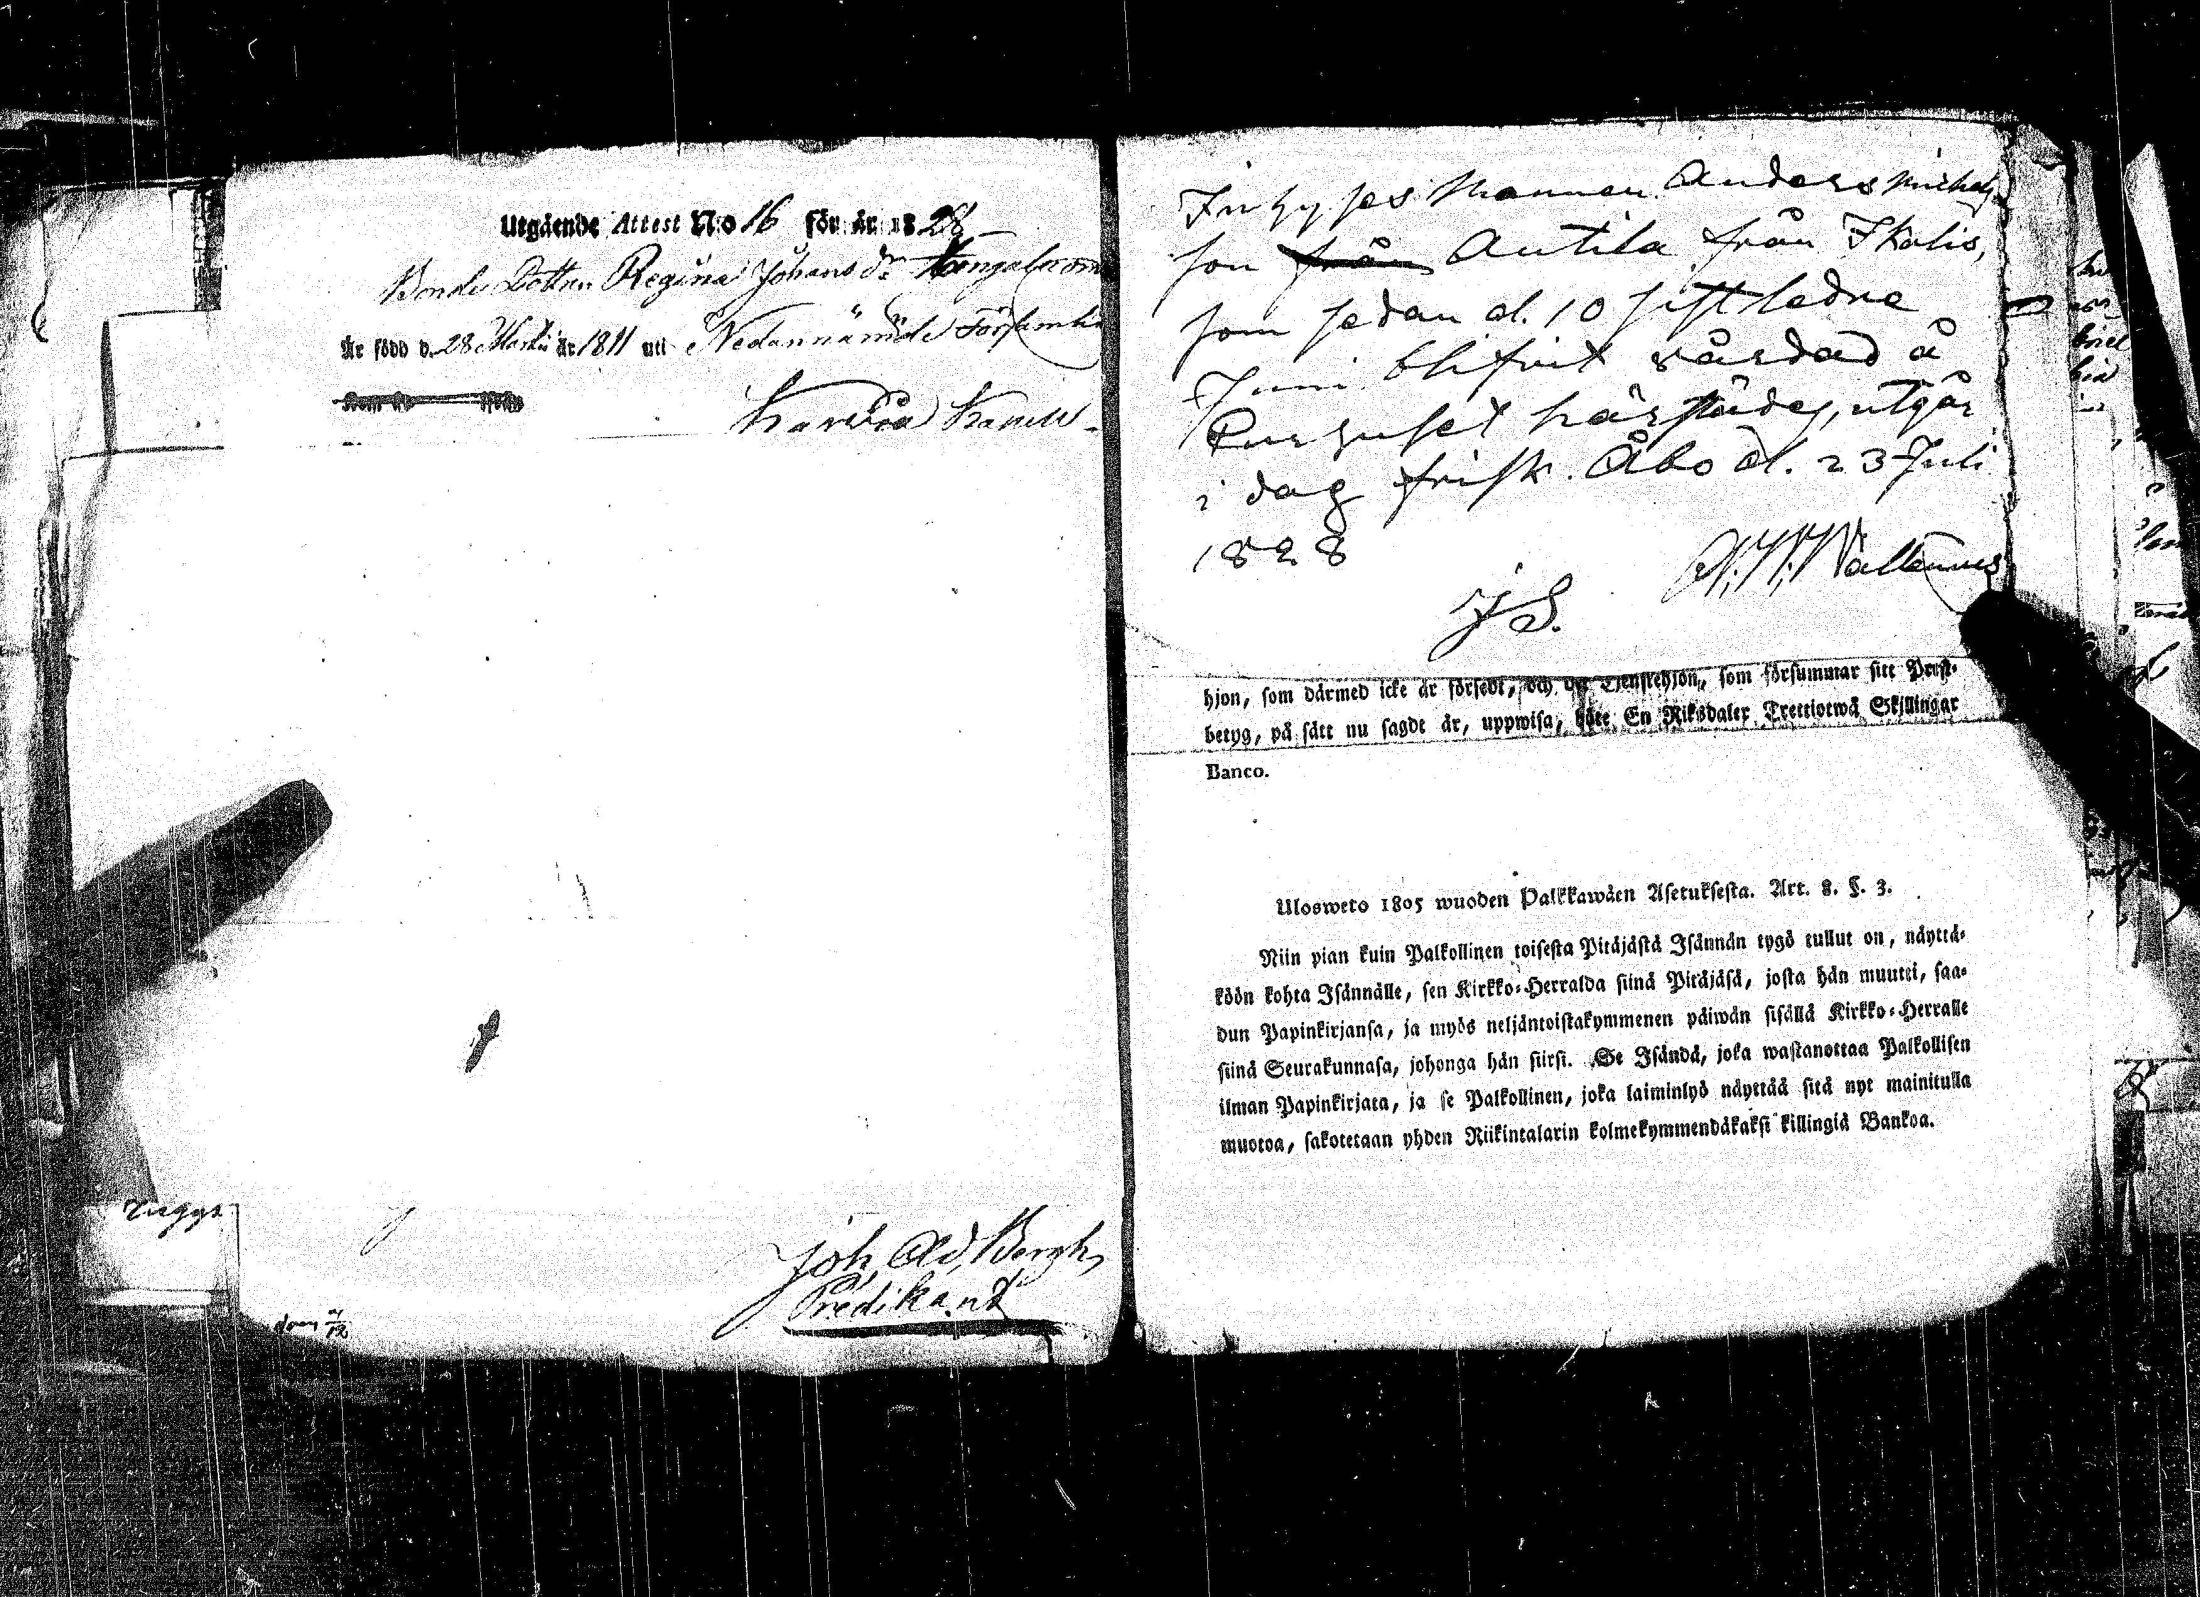 Utgående Attest N:o 16 för år 1828
Bonde Dottren Regina Johans dr
Är född d. 28 Martii år 1811 uti Nedannämde Församling
Joh. Ad. Bergh,
Prædikant
Inhyses Mannen Anders Michels
son från Antila från Ikalis,
som sedan d. 10 sistledne
Juni blifvit vårdad å
Curhuset härstädes, utgår
i dag frisk. Åbo d. 23 Juli
1828
hjon, som därmed icke är försedt, och det Tjenstehjon, som försummar sitt Prest-
betyg, på sätt nu sagdt är, uppwisa, böte En Riksdaler Trettiotwå Skillingar
Banco.
Ulosweto 1805 wuoden Palkkawäen Asetuksesta. Art. 8. §. 3.
Niin pian kuin Palkollinen toisesta Pitäjästä Isännän tygö tullut on, näyttä-
köön kohta Isännälle, sen Kirkko-Herralda siinä Pitäjäsä, josta hän muutti, saa-
dun Papinkirjansa, ja myös neljäntoistakymmenen päiwän sisällä Kirkko-Herralle
siinä Seurakunnasa, johonga hän siirsi. Se Isändä, joka wastanottaa Palkollisen
ilman Papinkirjata, ja se Palkollinen, joka laiminlyö näyttää sitä nyt mainitulla
muotoa, sakotetaan yhden Riikintalarin kolmekymmendäkaksi killingiä Bankoa.